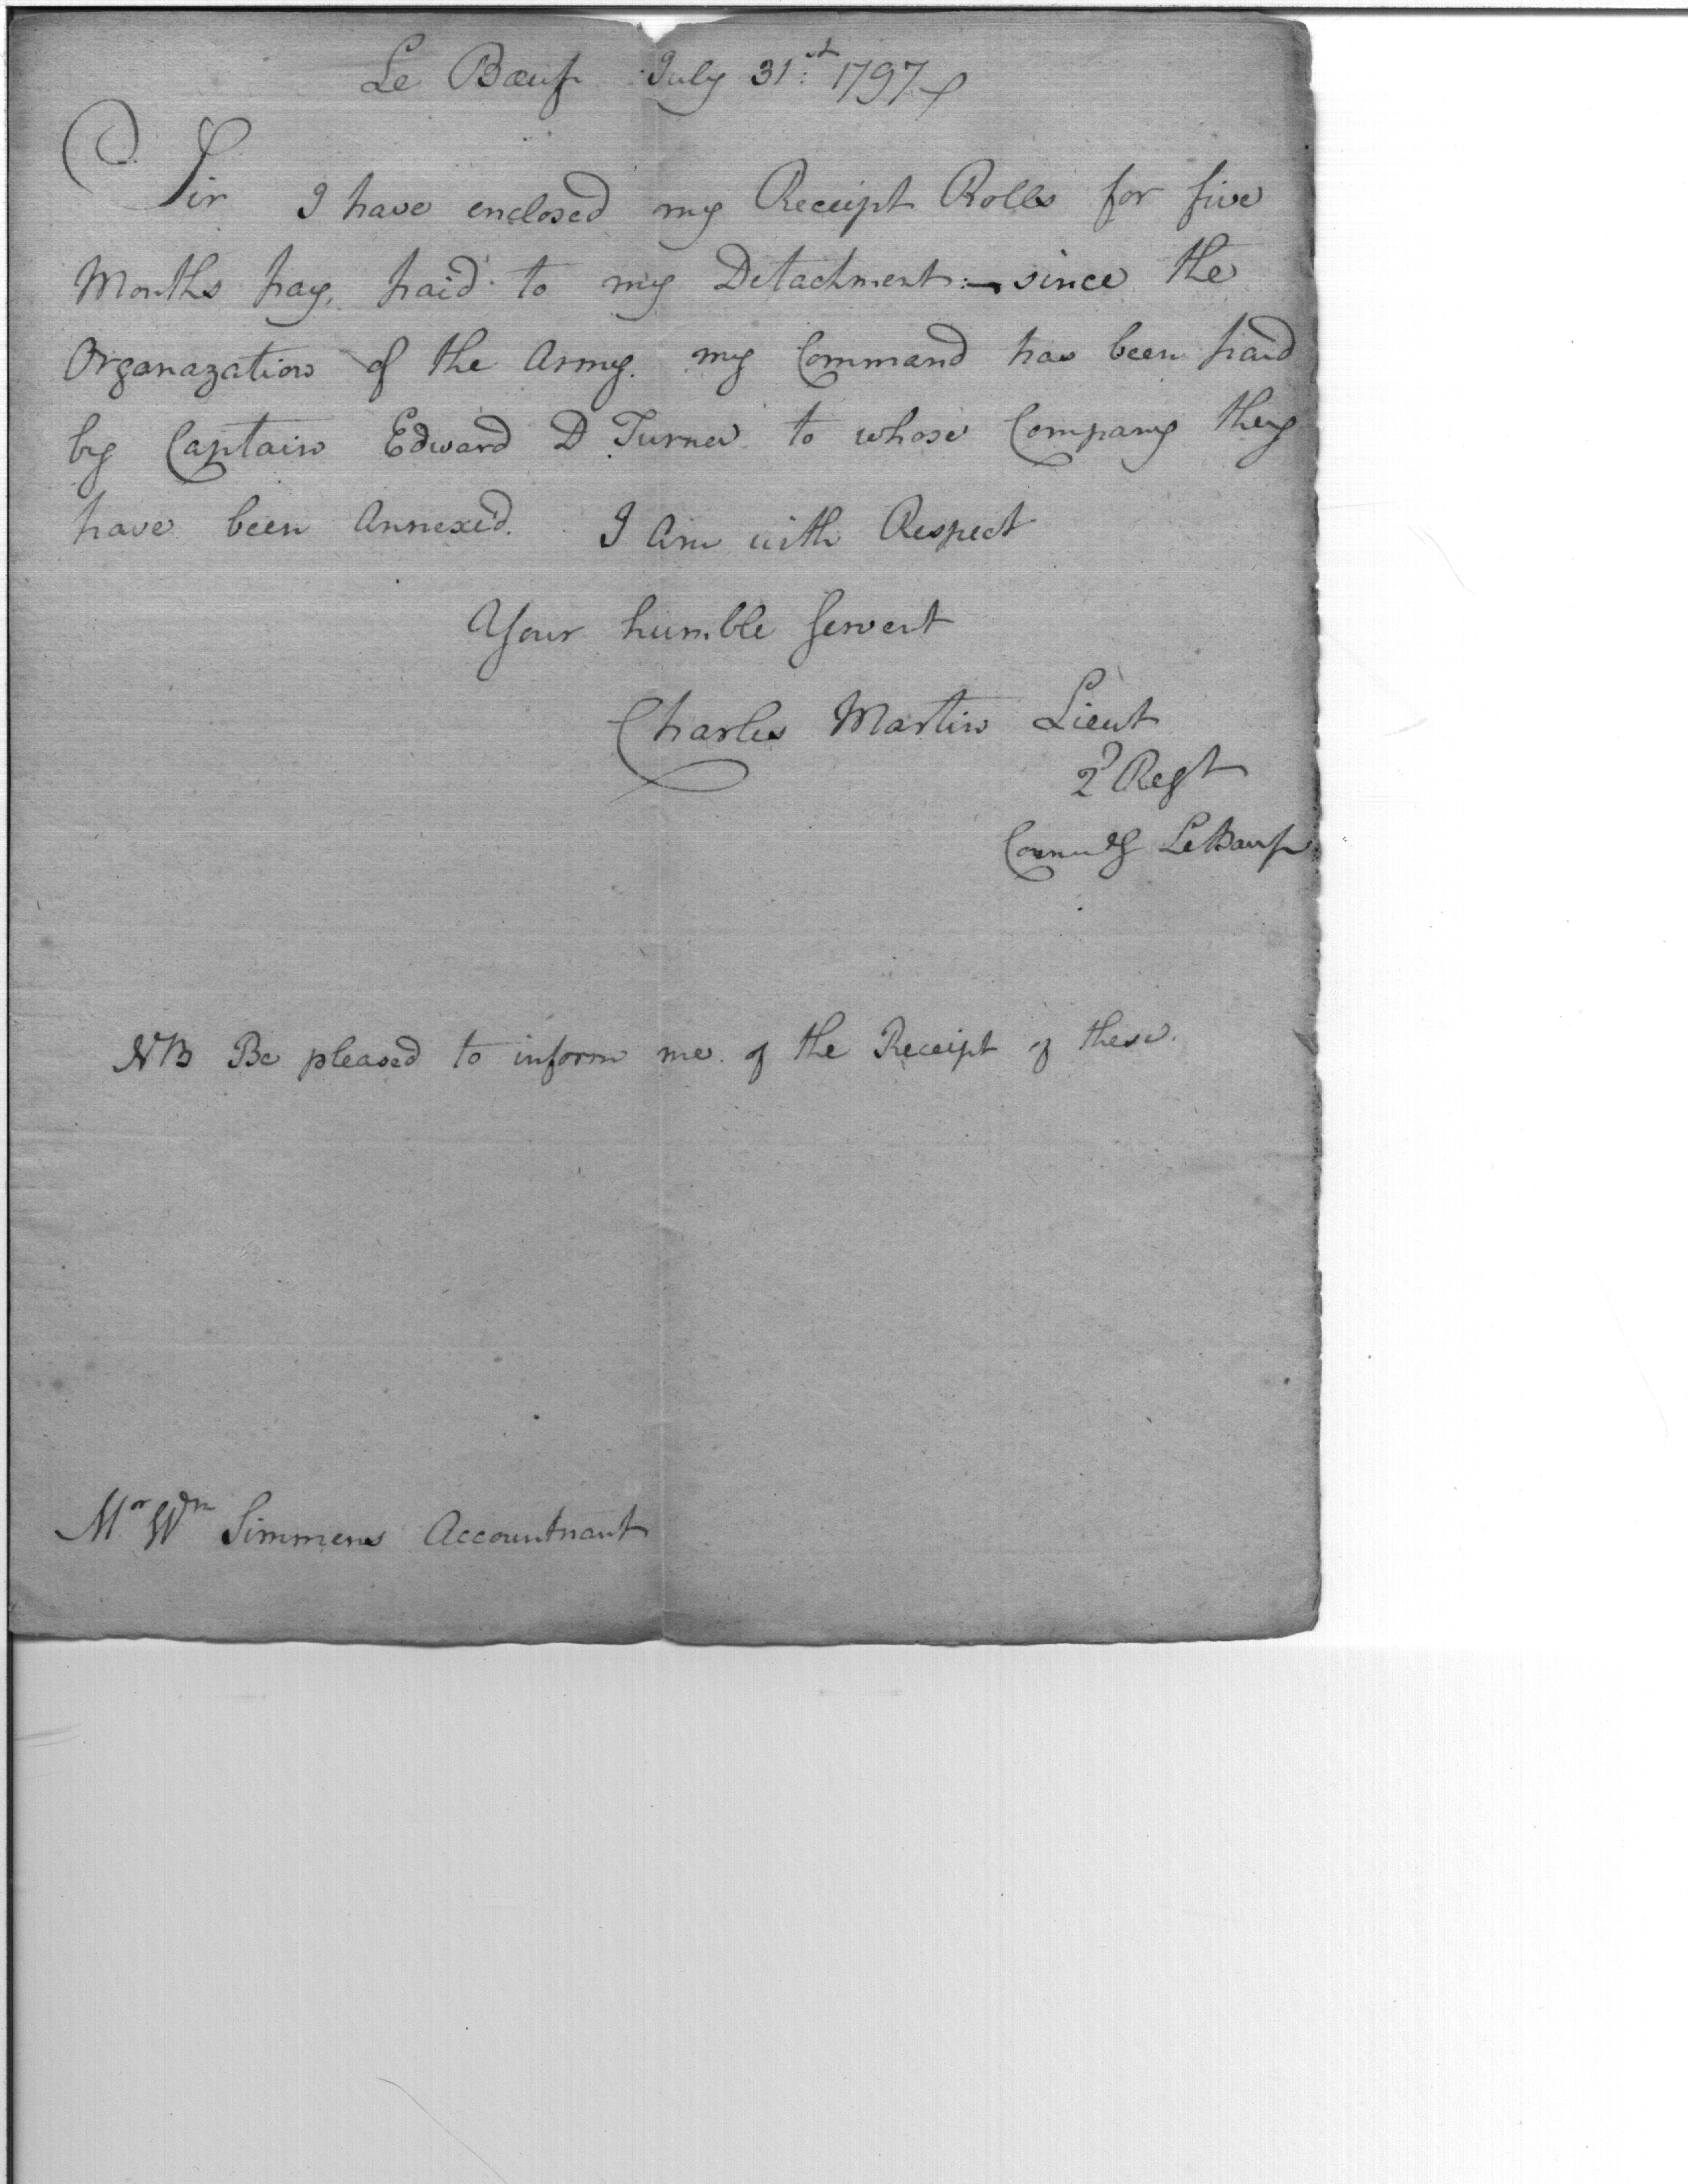 Le Bœuf July 31st 1797
Sir I have enclosed my Receipt Rolls for five
Months pay, paid to my Detachment:—since the
Organazation of the Army. my Command has been paid
by Captain Edward D Turner to whose Company they
have been Annexed. I Am with Respect
Your humble Servent
Charles Martin Lieut
2d Regt
Commdg LeBœuf
NB Be pleased to inform me of the Receipt of these.
Mr Wm Simmens Accountnant